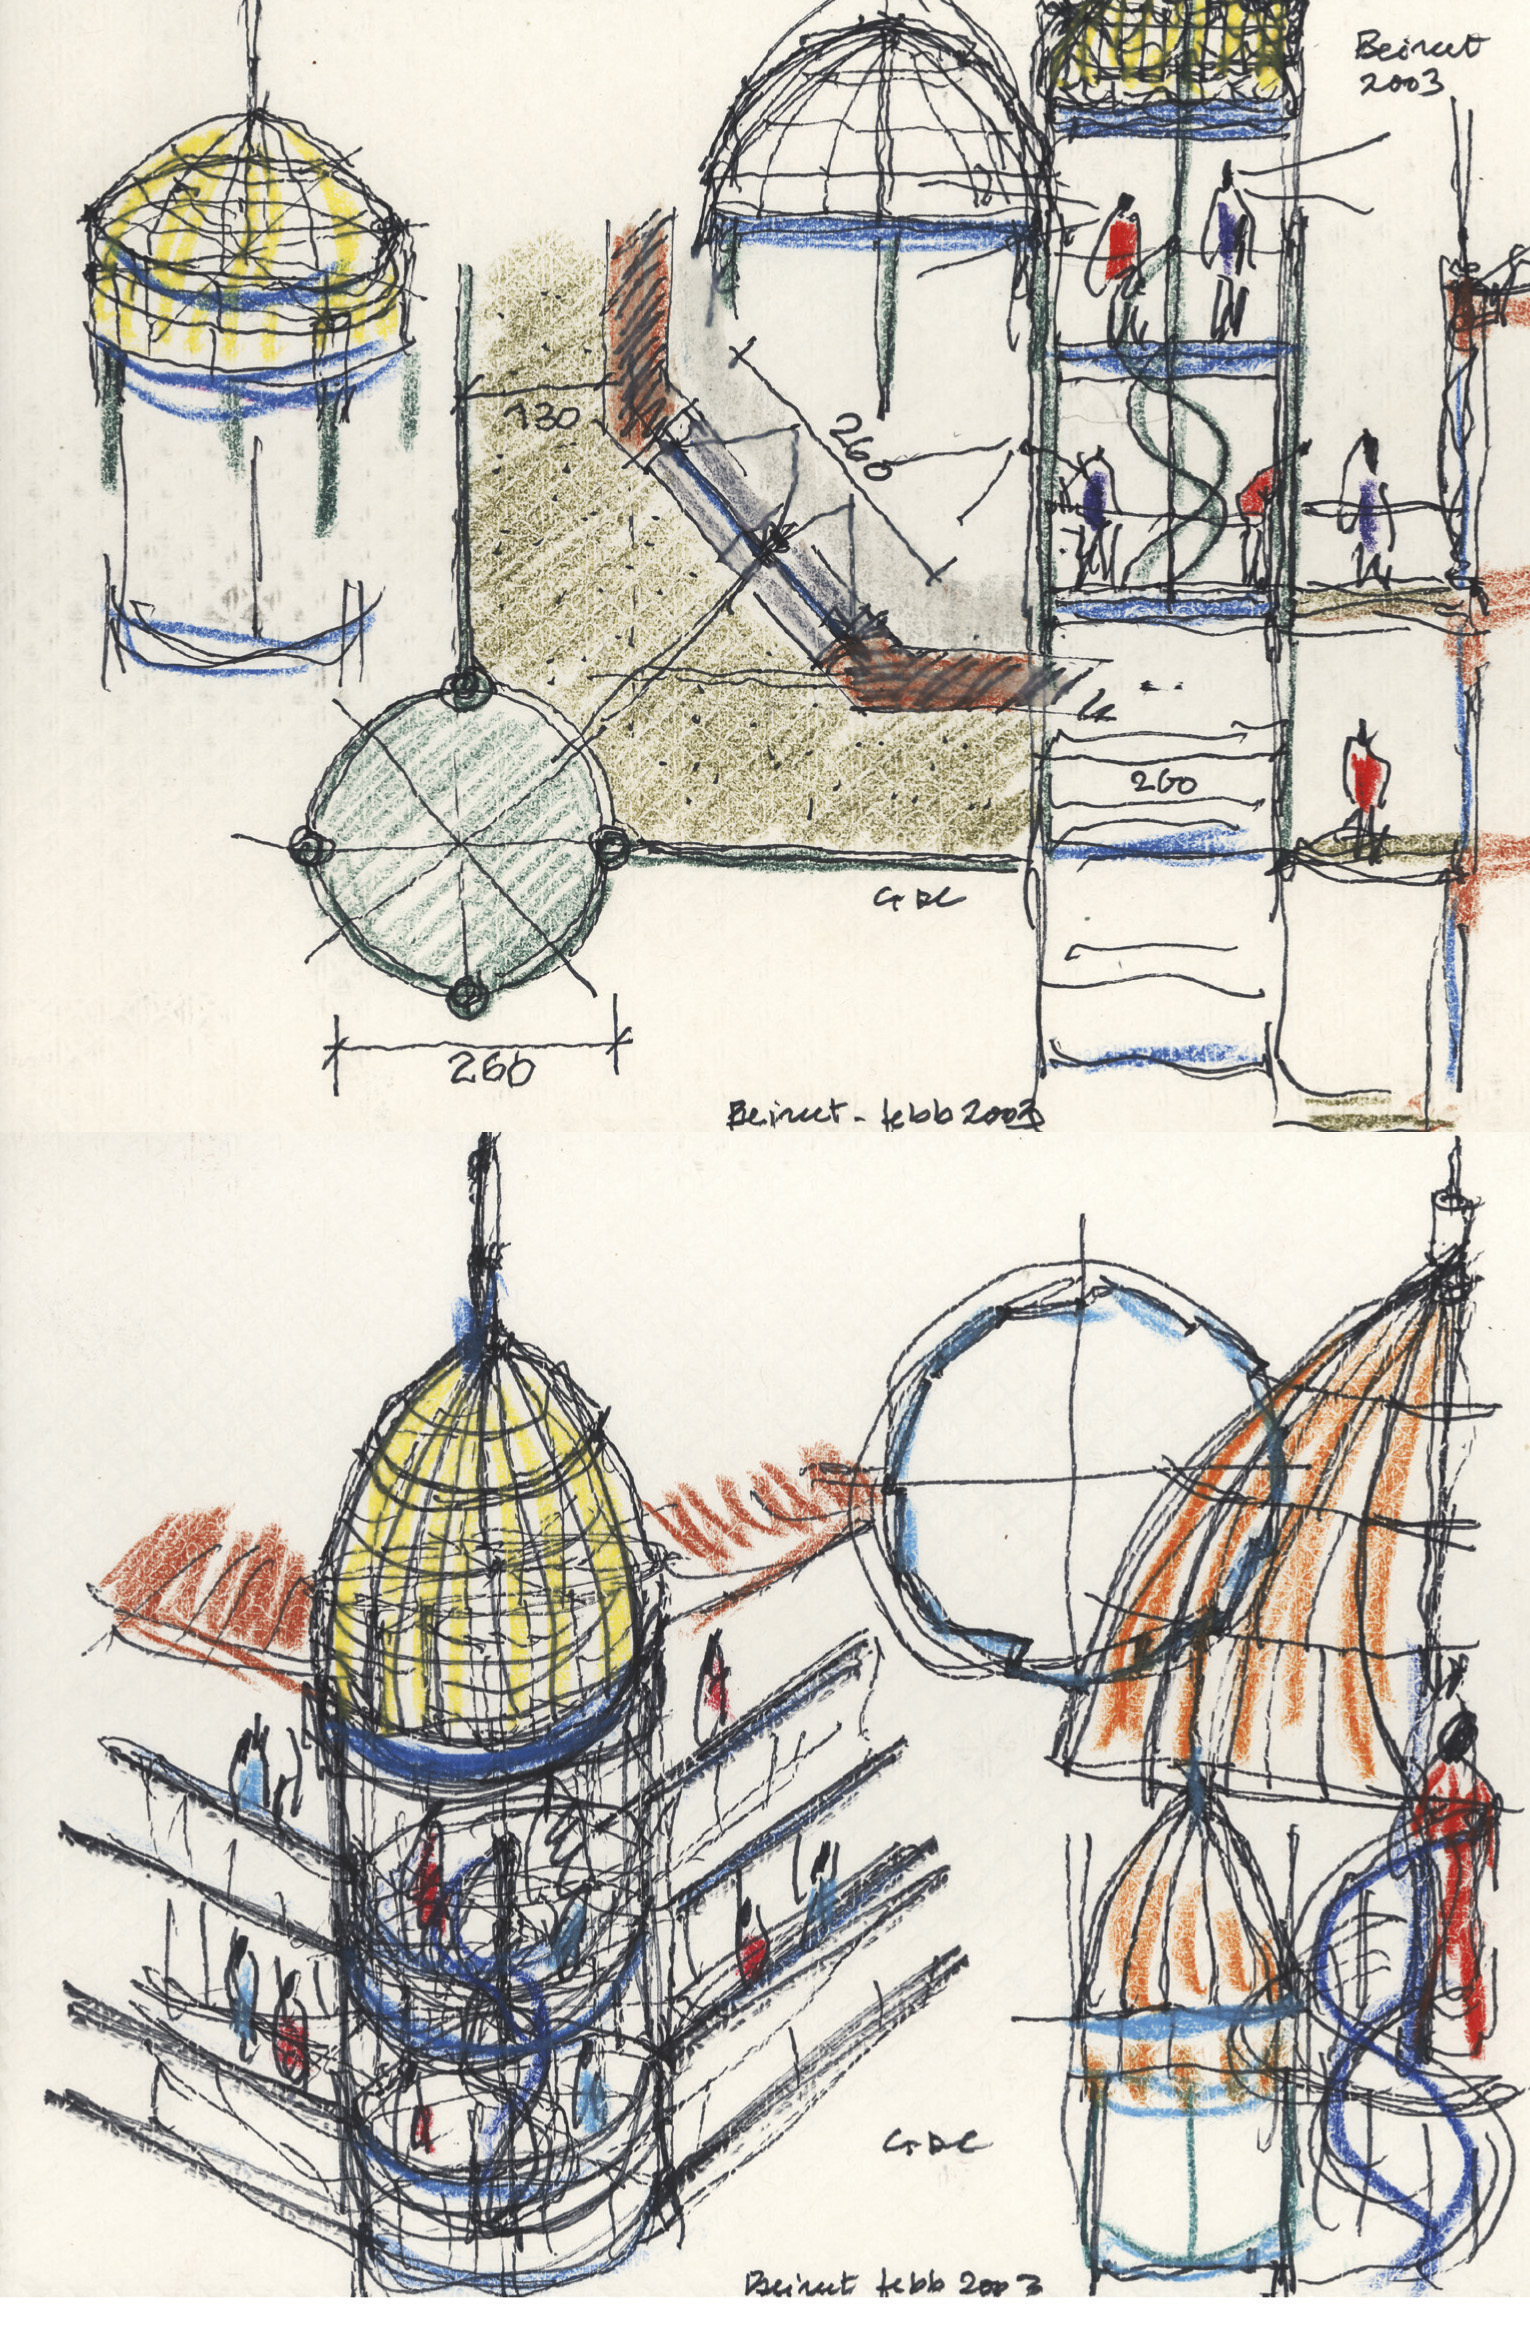 Beirut
2003
130
260
260
GDC
260
Beirut - febb 2003
GDC
Beirut febb 2003